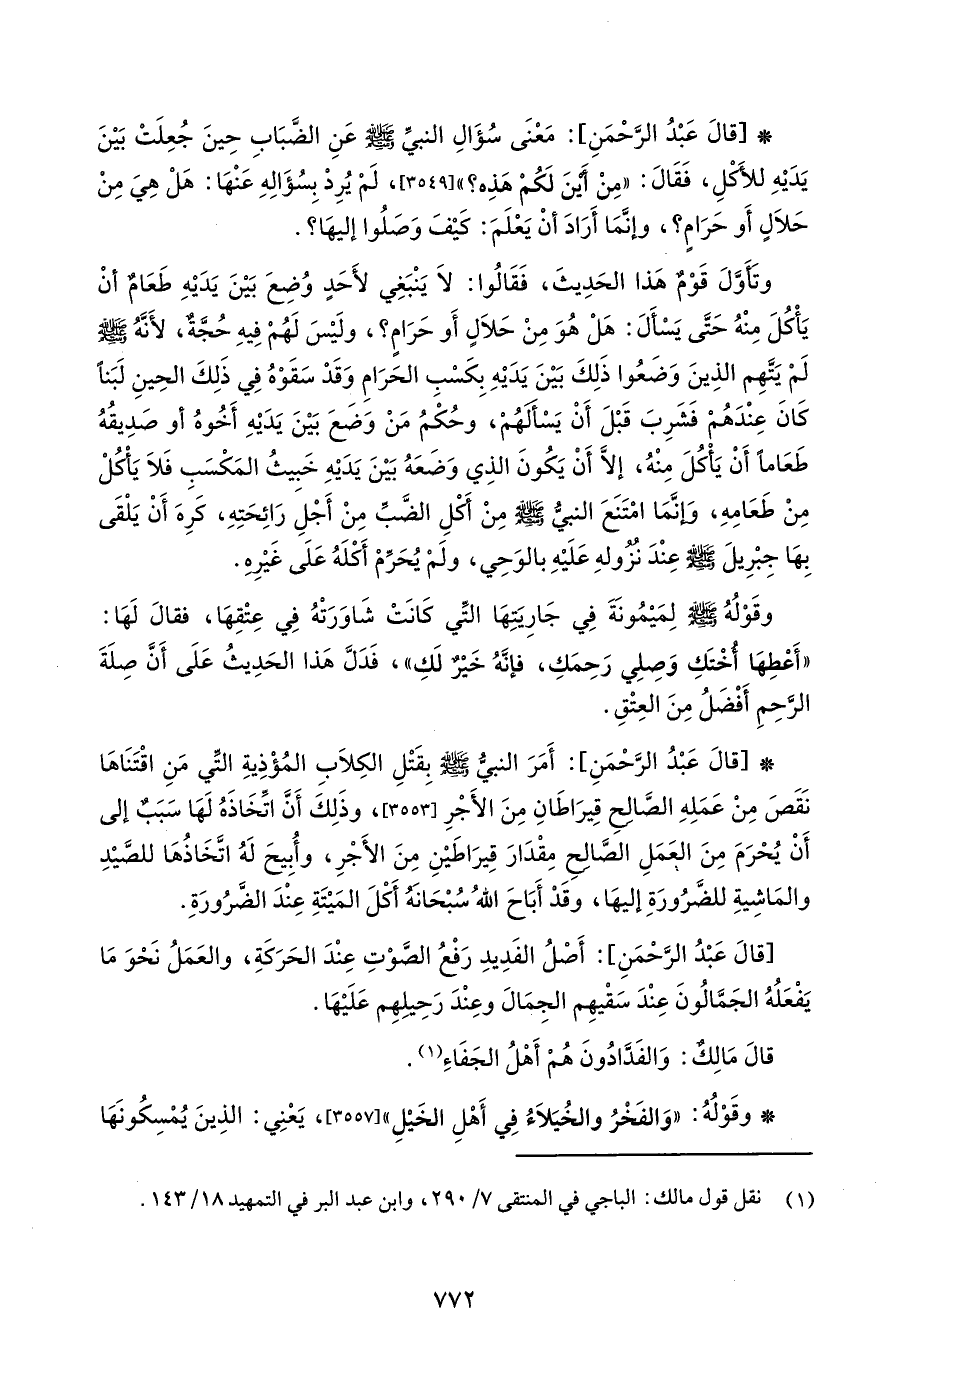 * [قالَ عَبْدُ الرَّحْمَنِ]: مَعْنَى سُؤَالِ النبيِّ ﷺ عَنِ الضَّبَابِ حِينَ جُعِلَتْ بَيْنَ
يَدَيْهِ للأَكْلِ، فَقَالَ: «مِنْ أَيْنَ لَكُمْ هَذِه؟»[٣٥٤٩]، لَمْ يُرِدْ بِسُؤَالِهِ عَنْهَا: هَلْ هِيَ مِنْ
حَلاَلٍ أو حَرَامٍ؟، وإنَّمَا أَرَادَ أنْ يَعْلَمَ: كَيْفَ وَصَلُوا إليهَا؟.
وتَأَوَّلَ قَوْمٌ هَذا الحَدِيثَ، فَقَالُوا: لاَ يَنْبَغِي لأَحَدٍ وُضِعَ بَيْنَ يَدَيْهِ طَعَامٌ أنْ
يَأْكُلَ مِنْهُ حَتَّى يَسْأَلَ: هَلْ هُوَ مِنْ حَلاَلٍ أو حَرَامٍ؟، ولَيْسَ لَهُمْ فِيهِ حُجَّةٌ، لأَنَّهُ ﷺ
لَمْ يَتَّهِمِ الذِينَ وَضَعُوا ذَلِكَ بَيْنَ يَدَيْهِ بِكَسْبِ الحَرَامِ وَقَدْ سَقَوْهُ فِي ذَلِكَ الحِينِ لَبَناً
كَانَ عِنْدَهُمْ فَشَرِبَ قَبْلَ أَنْ يَسْأَلَهُمْ، وحُكْمُ مَنْ وَضَعَ بَيْنَ يَدَيْهِ أَخُوهُ أو صَدِيقُهُ
طَعَاماً أَنْ يَأْكُلَ مِنْهُ، إلاَّ أَنْ يَكُونَ الذِي وَضَعَهُ بَيْنَ يَدَيْهِ خَبِيثُ المَكْسَبِ فَلاَ يَأْكُلْ
مِنْ طَعَامِهِ، وَإنَّمَا امْتَنَعَ النبيُّ ﷺ مِنْ أَكْلِ الضَّبِّ مِنْ أَجْلِ رَائِحَتِهِ، كَرِهَ أَنْ يَلْقَى
بِهَا جِبْرِيلَ ﷺ عِنْدَ نُزُولِهِ عَلَيْهِ بالوَحِي، ولَمْ يُحَرِّمْ أَكْلَهُ عَلَى غَيْرِهِ.
وقَوْلُهُ ﷺ لِمَيْمُونَةَ فِي جَارِيَتِهَا التِّي كَانَتْ شَاوَرَتْهُ فِي عِتْقِهَا، فقالَ لَهَا:
«أَعْطِهَا أُخْتَكِ وَصِلِي رَحِمَكِ، فإنَّهُ خَيْرٌ لَكِ»، فَدَلَّ هَذا الحَدِيثُ عَلَى أَنَّ صِلَةَ
الرَّحِمِ أَفْضَلُ مِنَ العِتْقِ.
* [قالَ عَبْدُ الرَّحْمَنِ]: أَمَرَ النبيُّ ﷺ بِقَتْلِ الكِلاَبِ المُؤْذِيةِ التِّي مَنِ اقْتَنَاهَا
نَقَصَ مِنْ عَمَلِهِ الصَّالِحِ قِيرَاطَانِ مِنَ الأَجْرِ [٣٥٥٣]، وذَلِكَ أَنَّ اتِّخَاذَهُ لَهَا سَبَبٌ إلى
أَنْ يُحْرَمَ مِنَ العَمَلِ الصَّالِحِ مِقْدَارَ قِيرَاطَيْنِ مِنَ الأَجْرِ، وأُبِيحَ لَهُ اتِّخَاذُهَا للصَّيْدِ
والمَاشِيةِ للضَّرُورَةِ إليهَا، وقَدْ أَبَاحَ اللهُ سُبْحَانَهُ أَكْلَ المَيْتَةِ عِنْدَ الضَّرُورَةِ.
[قالَ عَبْدُ الرَّحْمَنِ]: أَصْلُ الفَدِيدِ رَفْعُ الصَّوْتِ عِنْدَ الحَرَكَةِ، والعَمَلُ نَحْوَ مَا
يَفْعَلُهُ الجَمَّالُونَ عِنْدَ سَقْيِهِم الجِمَالَ وعِنْدَ رَحِيلِهِم عَلَيْهَا.
قالَ مَالِكٌ: وَالفَدَّادُونَ هُمْ أَهْلُ الجَفَاءِ(١).
* وقَوْلُهُ: «وَالفَخْرُ والخُيَلاَءُ فِي أَهْلِ الخَيْلِ»[٣٥٥٧]، يَعْنِي: الذِينَ يُمْسِكُونَهَا
(١) نقل قول مالك: الباجي في المنتقى ٧/ ٢٩٠، وابن عبد البر في التمهيد ١٨/ ١٤٣.
٧٧٢